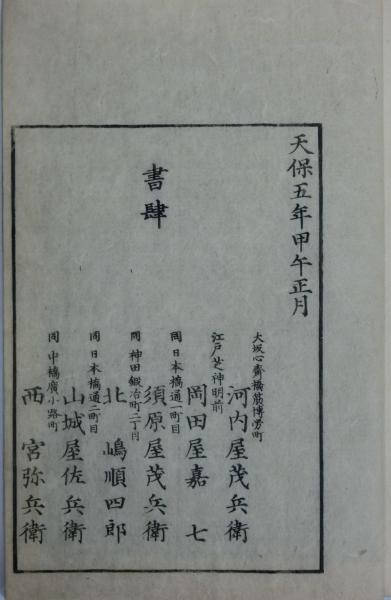 天保五年甲午正月
書肆
大坂心齋橋筋博労町
河内屋茂兵衛
江戸芝神明前
岡田屋嘉七
同日本橋通一町目
須原屋茂兵衛
同神田鍛冶町二丁目
北嶋順四郎
同日本橋通二町目
山城屋佐兵衛
同中橋廣小路町
西宮弥兵衛